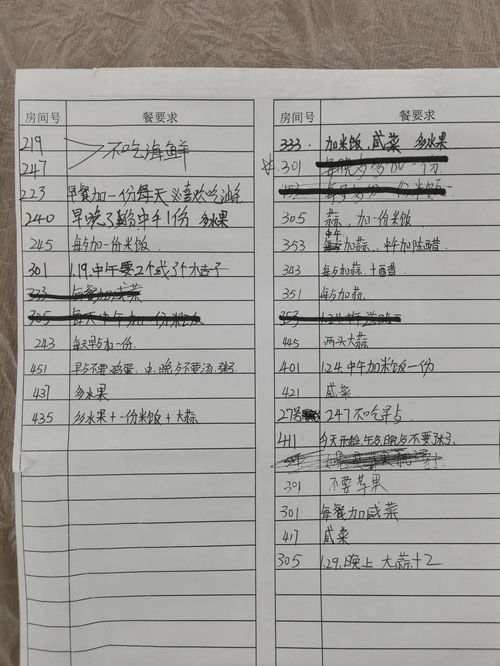 房间号 餐要求
219
247 不吃海鲜
223 早餐加一份每天 喜欢吃油条
240 早晚 中午1份 多水果
245 每与加一份米饭
301 1.19.中午要2个或3个水
333 每餐加咸菜
305 每天中午加一份米饭
243 每天早与加一份.
451 早与不要鸡蛋,中.晚与不要汤.粥.
437 多水果
435 多水果+一份米饭+大蒜
房间号 餐要求
333. 加米饭,咸菜 多水果
301
305 蒜,加一份米饭
353 中午 加蒜、中午加陈醋.
343 每与加蒜.+醋.
351 每与加蒜.
353 1.24.
445 两头大蒜
401 1.24.中午加米饭一份
421 咸菜
27号 247不吃早与
411 今天开始.午与.晚与不要粥
301 不要苹果
301 每餐加咸菜
417 咸菜
305 1.29.晚上 大蒜+2